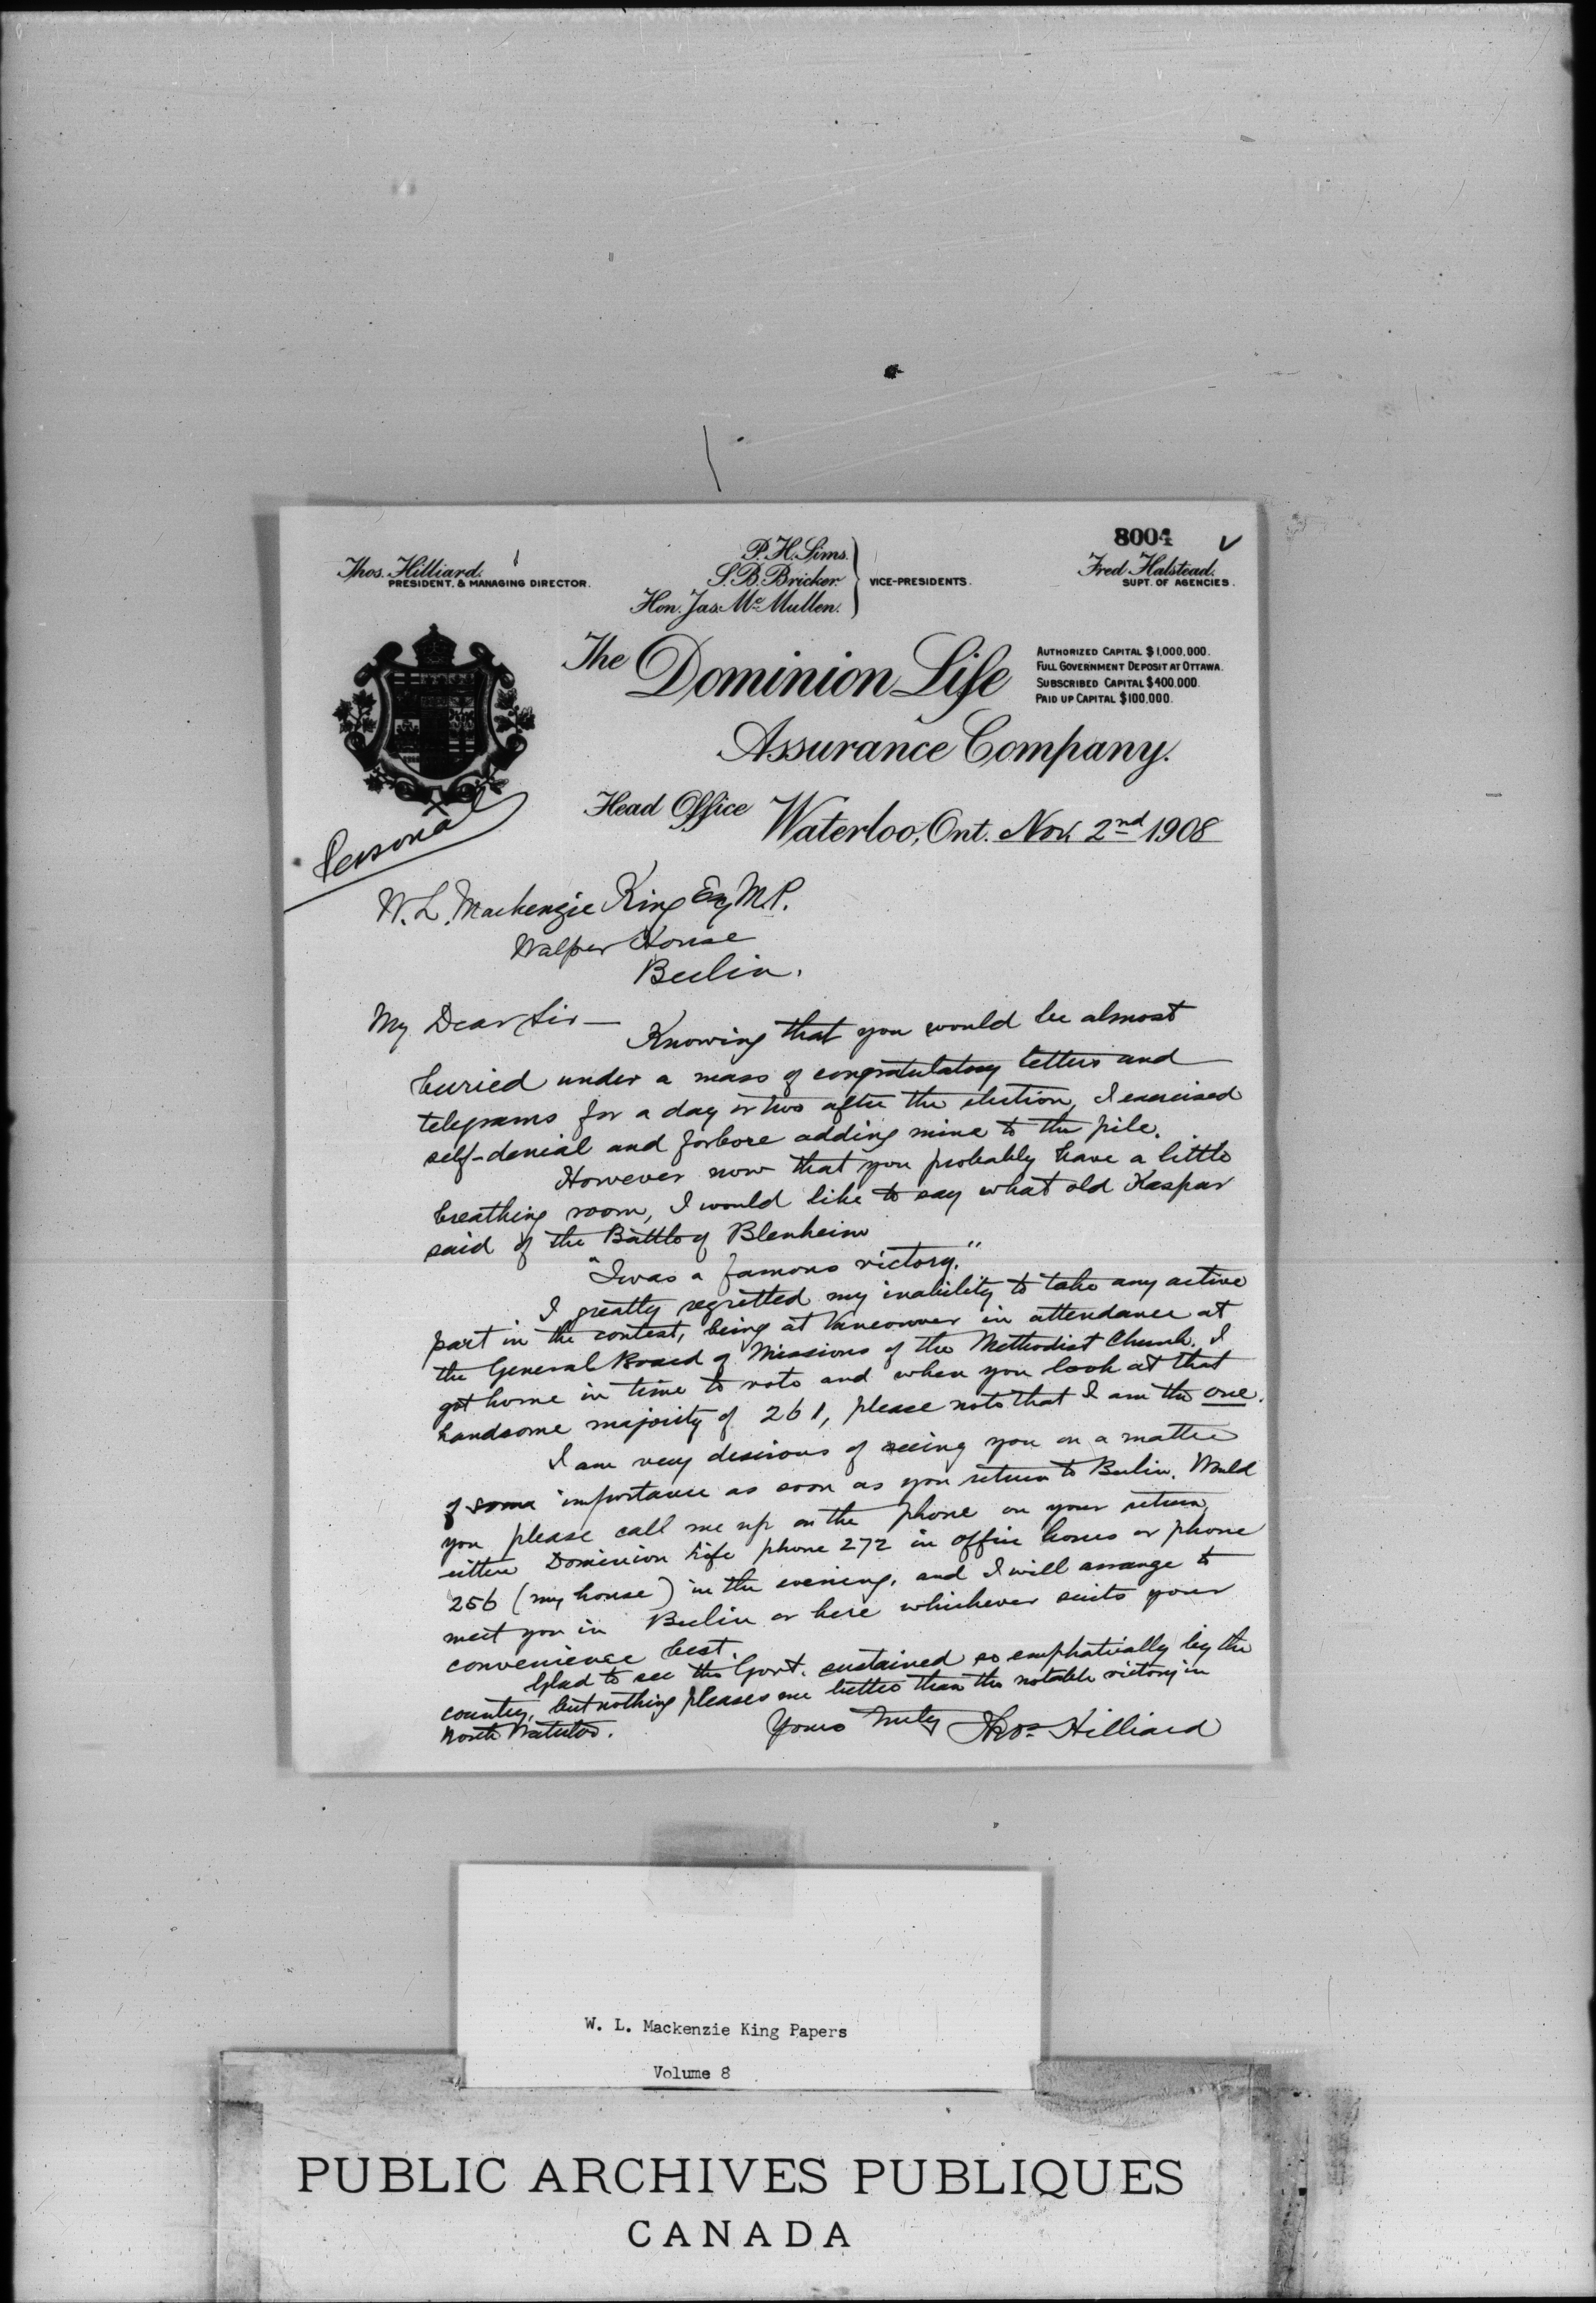 8004
Thos. Hilliard.
PRESIDENT, & MANAGING DIRECTOR.
P. H. Sims.
S. B. Bricker.
Hon. Jas. McMullen.
VICE-PRESIDENTS.
Fred Halstead.
SUPT. OF AGENCIES.
The Dominion Life
Assurance Company.
AUTHORIZED CAPITAL $1,000,000.
FULL GOVERNMENT DEPOSIT AT OTTAWA.
SUBSCRIBED CAPITAL $400,000.
PAID UP CAPITAL $100,000.
Head Office Waterloo, Ont. Nov. 2nd 1908
Personal
W. L. Mackenzie King Esq M.P.
Walper House
Berlin.
My Dear Sir — Knowing that you would be almost
buried under a mass of congratulatory letters and
telegrams for a day or two after the election, I exercised
self-denial and forbore adding mine to the pile.
However now that you probably have a little
breathing room, I would like to say what old Kaspar
said of the Battle of Blenheim
"Twas a famous victory."
I greatly regretted my inability to take any active
part in the contest, being at Vancouver in attendance at
the General Board of Missions of the Methodist Church. I
got home in time to vote and when you look at that
handsome majority of 261, please note that I am the one.
I am very desirous of seeing you on a matter
of some importance as soon as you return to Berlin. Would
you please call me up on the phone on your return,
either Dominion Life phone 272 in office hours or phone
256 (my house) in the evening, and I will arrange to
meet you in Berlin or here whichever suits your
convenience best.
Glad to see the Govt. sustained so emphatically by the
country, but nothing pleases me better than the notable victory in
North Waterloo.
Yours truly Thos. Hilliard
W. L. Mackenzie King Papers
Volume 8
PUBLIC ARCHIVES PUBLIQUES
CANADA